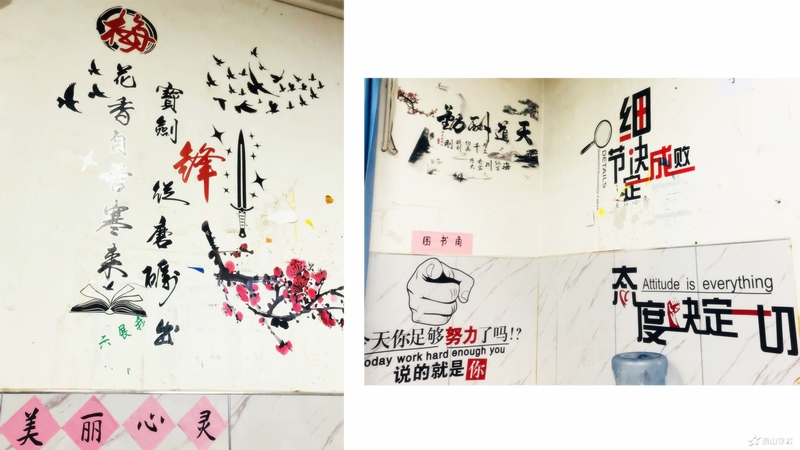 寶劍鋒從磨礪出
梅花香自苦寒来
六
美丽心灵
天道酬勤
图书角
细节决定成败
DETAILS
今天你足够努力了吗!?
oday work hard enough you
说的就是你
Attitude is everything
态度决定一切